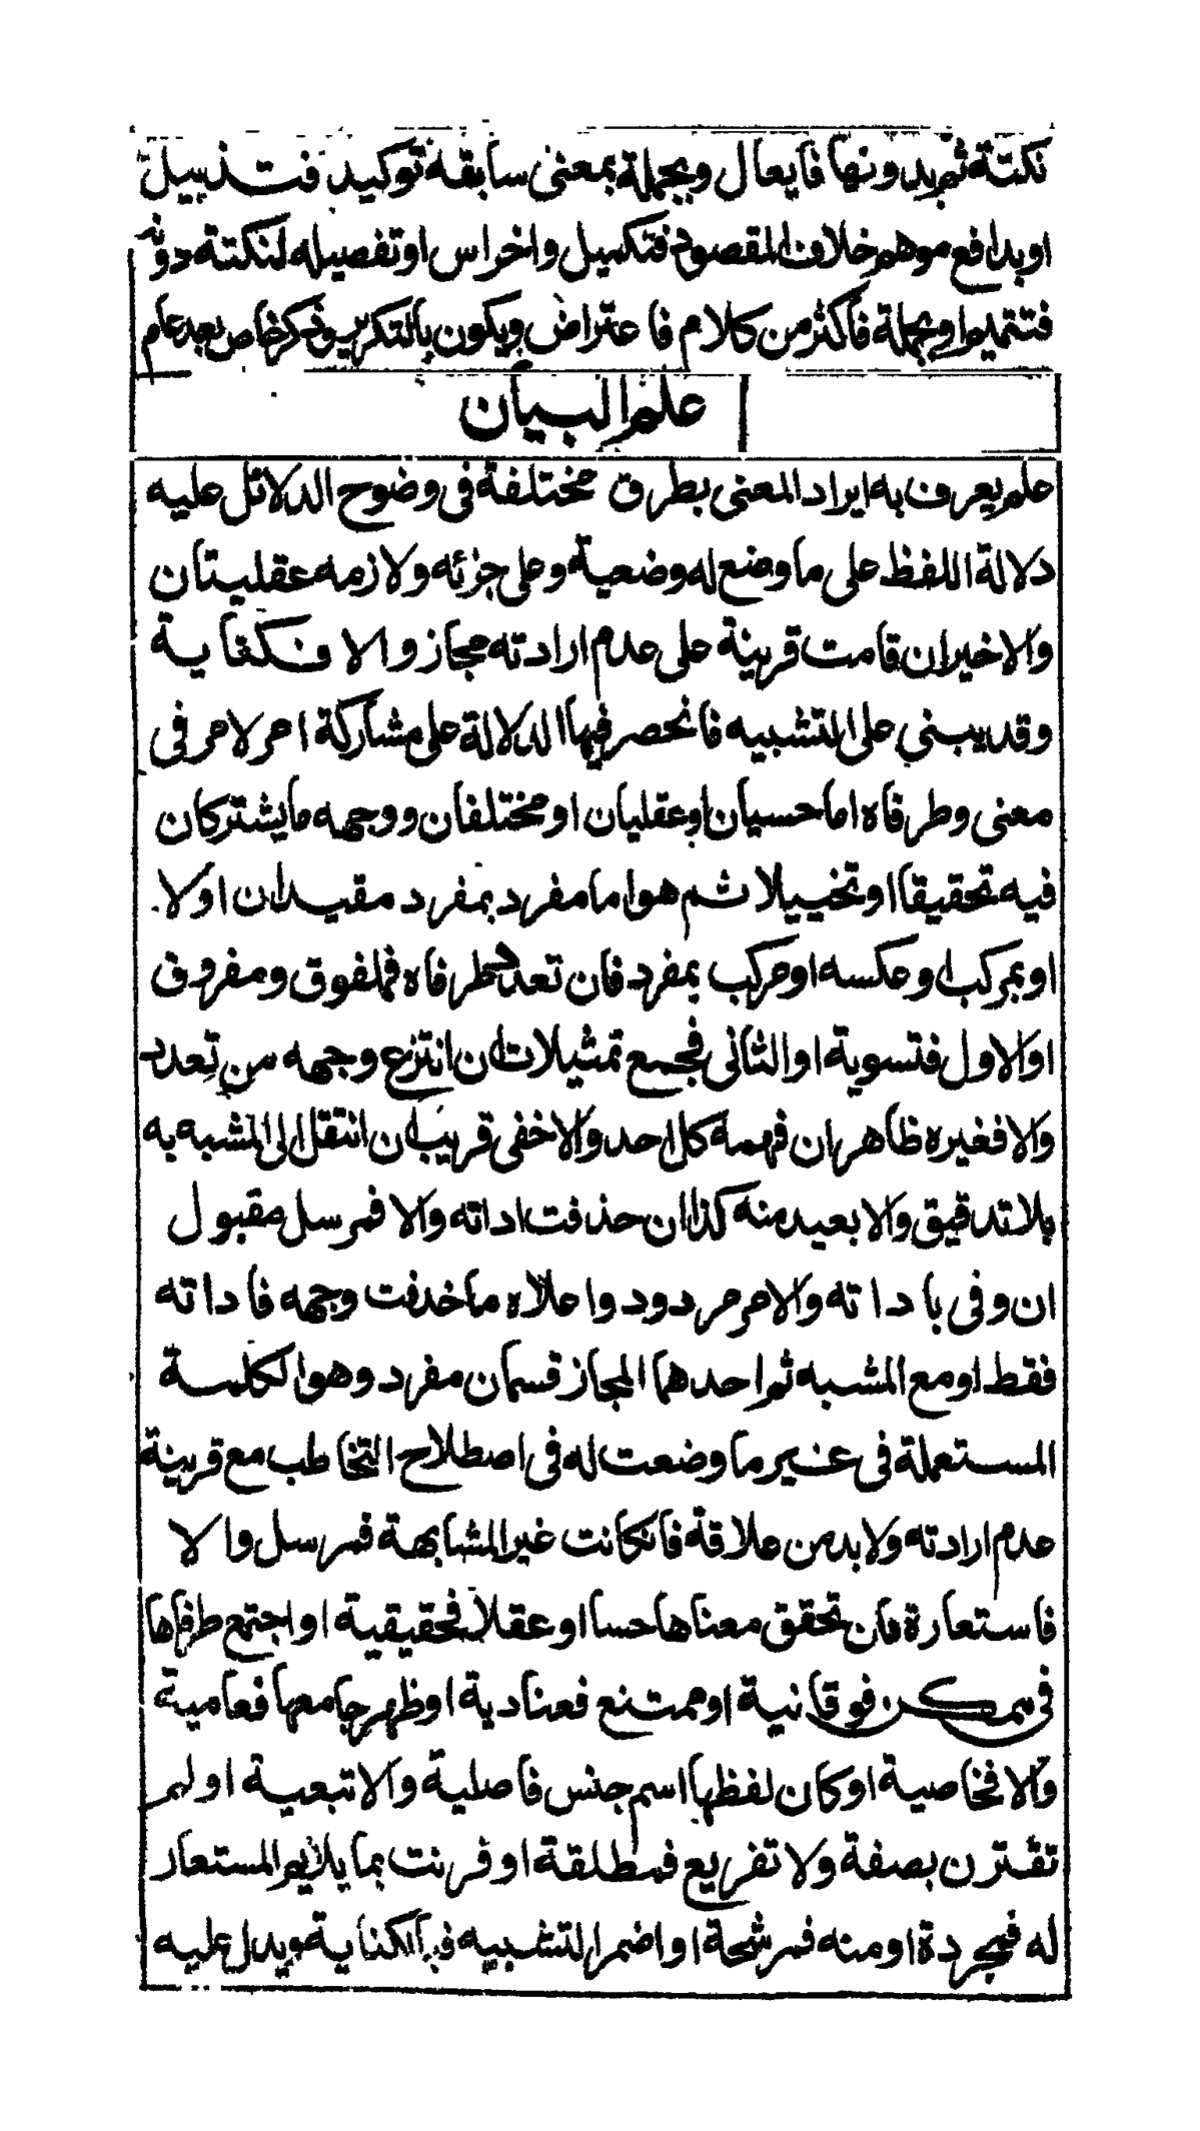 نكتة ثم بدونها فايعال وبجملة بمعنى سابقة توكيد فتذييل
او بدافع موهم خلاف المقصود فتكميل واخراس او تفصيله لنكتة دونه
فتتميم او بجملة فأكثر من كلام فاعتراض ويكون بالتكرير وذكر خاص بعد عام
علم البيان
علم يعرف به ايراد المعنى بطرق مختلفة فى وضوح الدلائل عليه
دلالة اللفظ على ما وضع له وضعية وعلى جزئه ولازمه عقليتان
والاخيران قامت قرينة على عدم ارادته مجاز والا فكناية
وقد يبنى على التشبيه فانحصر فيها الدلالة على مشاركة امر لامر فى
معنى وطرفاه اما حسيان او عقليان او مختلفان ووجهه ما يشتركان
فيه تحقيقا او تخييلا ثم هو اما مفرد بمفرد مقيدان اولا
او بمركب او عكسه او مركب بمفرد فان تعدد طرفاه فملفوق ومفروق
او الاول فتسوية او الثانى فجمع تمثيلات ان انتزع وجهه من تعدد
والا فغيره ظاهر ان فهمه كل احد والا خفى قريب ان انتقل الى المشبه به
بلا تدقيق والا بعيد منه كذا ان حذفت اداته والا فمرسل مقبول
ان وفى باداته والا مرمردود واعلاه ما حذفت وجهه فاداته
فقط او مع المشبه ثم احدهما المجاز قسمان مفرد وهو الكلمة
المستعملة فى غير ما وضعت له فى اصطلاح التخاطب مع قرينة
عدم ارادته ولا بد من علاقة فانكانت غير المشابهة فمرسل والا
فاستعارة فان تحقق معناها حسا او عقلا فحقيقية او اجتمع طرفاها
فى ممكن فوقانية او ممتنع فعنادية او ظهر جامعها فعامية
والا فخاصية او كان لفظها اسم جنس فاصلية والا تبعية او لم
تقترن بصفة ولا تفريع فمطلقة او قرنت بما يلايم المستعار
له فمجردة او منه فمرشحة او اضمر التشبيه فبالكناية ويدل عليه